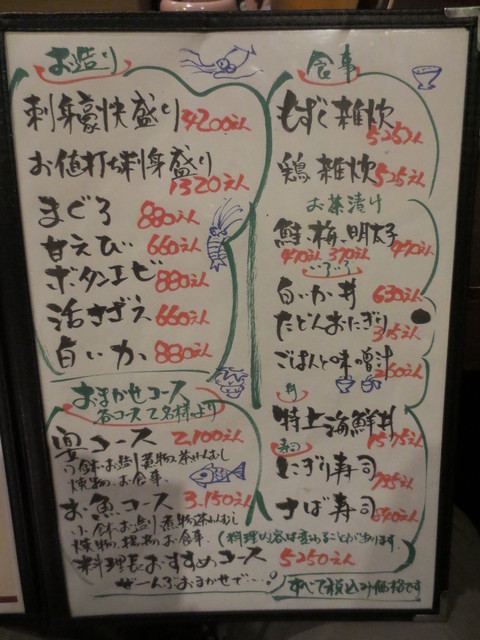 お造り
刺身豪快盛り 4200えん
お値打ち刺身盛り
1320えん
まぐろ 880えん
甘えび 660えん
ボタンエビ 880えん
活さざえ 660えん
白いか 880えん
おまかせコース
各コース2名様より
宴コース 2,100えん
小鉢、お造り、煮物、茶わんむし
焼物、お食事
お魚コース 3,150えん
小鉢、お造り、煮物、茶わんむし
焼物、揚物、お食事
(料理内容は変わることがあります)
料理長おすすめコース 5250えん
ぜーんぶおまかせで…
すべて税込み価格です
食事
もずく雑炊
525えん
鶏雑炊 525えん
お茶漬け
鮭・梅、明太子
470えん 370えん 470えん
白いか丼 630えん
たどんおにぎり
315えん
ごはんと味噌汁
260えん
丼
特上海鮮丼
1575えん
寿司
にぎり寿司
785えん
さば寿司